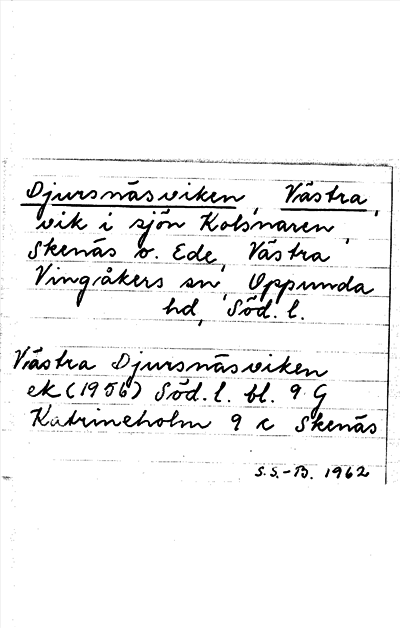 Djursnäsviken, Västra,
vik i sjön Kolsnaren,
Skenäs o. Ede, Västra
Vingåkers sn, Oppunda
hd, Söd. l.
Västra Djursnäsviken
ek (1956) Söd. l. bl. 9 G
Katrineholm 9 c Skenäs
S.S.-B. 1962